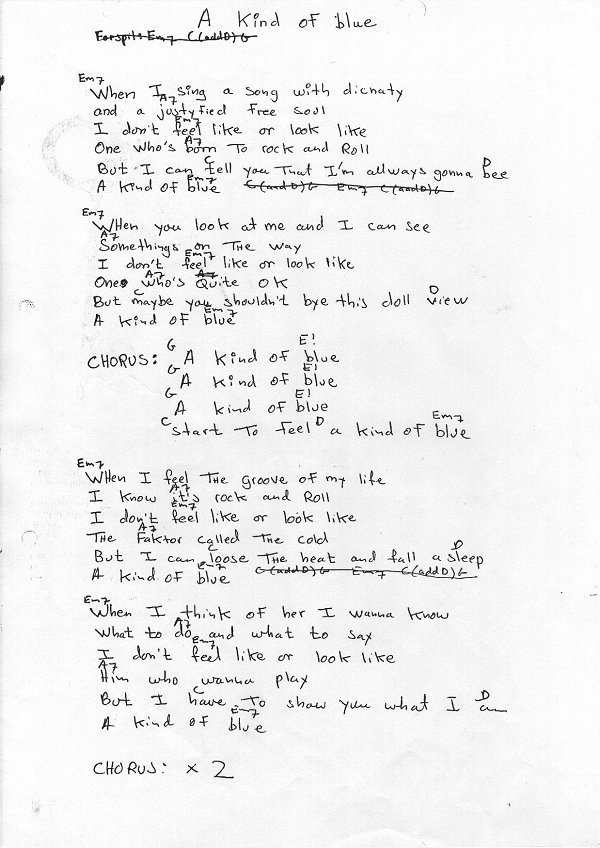 A Kind of blue
Forspil: Em7 C(addD) G
Em7
When I sing a song with dicnaty
A7
and a justyfied free soul
Em7
I don't feel like or look like
A7
One who's born To rock and Roll
C D
But I can tell you That I'm allways gonna bee
A Kind of blue C(addD) G Em7 C(addD) G
Em7
WHen you look at me and I can see
A7
Somethings on THe way
Em7
I don't feel like or look like
A7 A7
One who's Quite OK
C D
But maybe you shouldn't bye this doll view
Em7
A Kind of blue
G E!
CHORUS: A Kind of blue
G E!
A Kind of blue
G E!
A Kind of blue
C D Em7
Start To feel a Kind of blue
Em7
WHen I feel THe groove of my life
A7
I know it's rock and Roll
Em7
I don't feel like or look like
A7
THe Faktor called THe cold
C D
But I can loose THe beat and fall a sleep
Em7
A Kind of blue C(addD) G Em7 C(addD) G
Em7
When I think of her I wanna know
A7
What to do and what to say
Em7
I don't feel like or look like
A7
Him who wanna play
C D
But I have To show you what I am
Em7
A Kind of blue
CHORUS: x 2